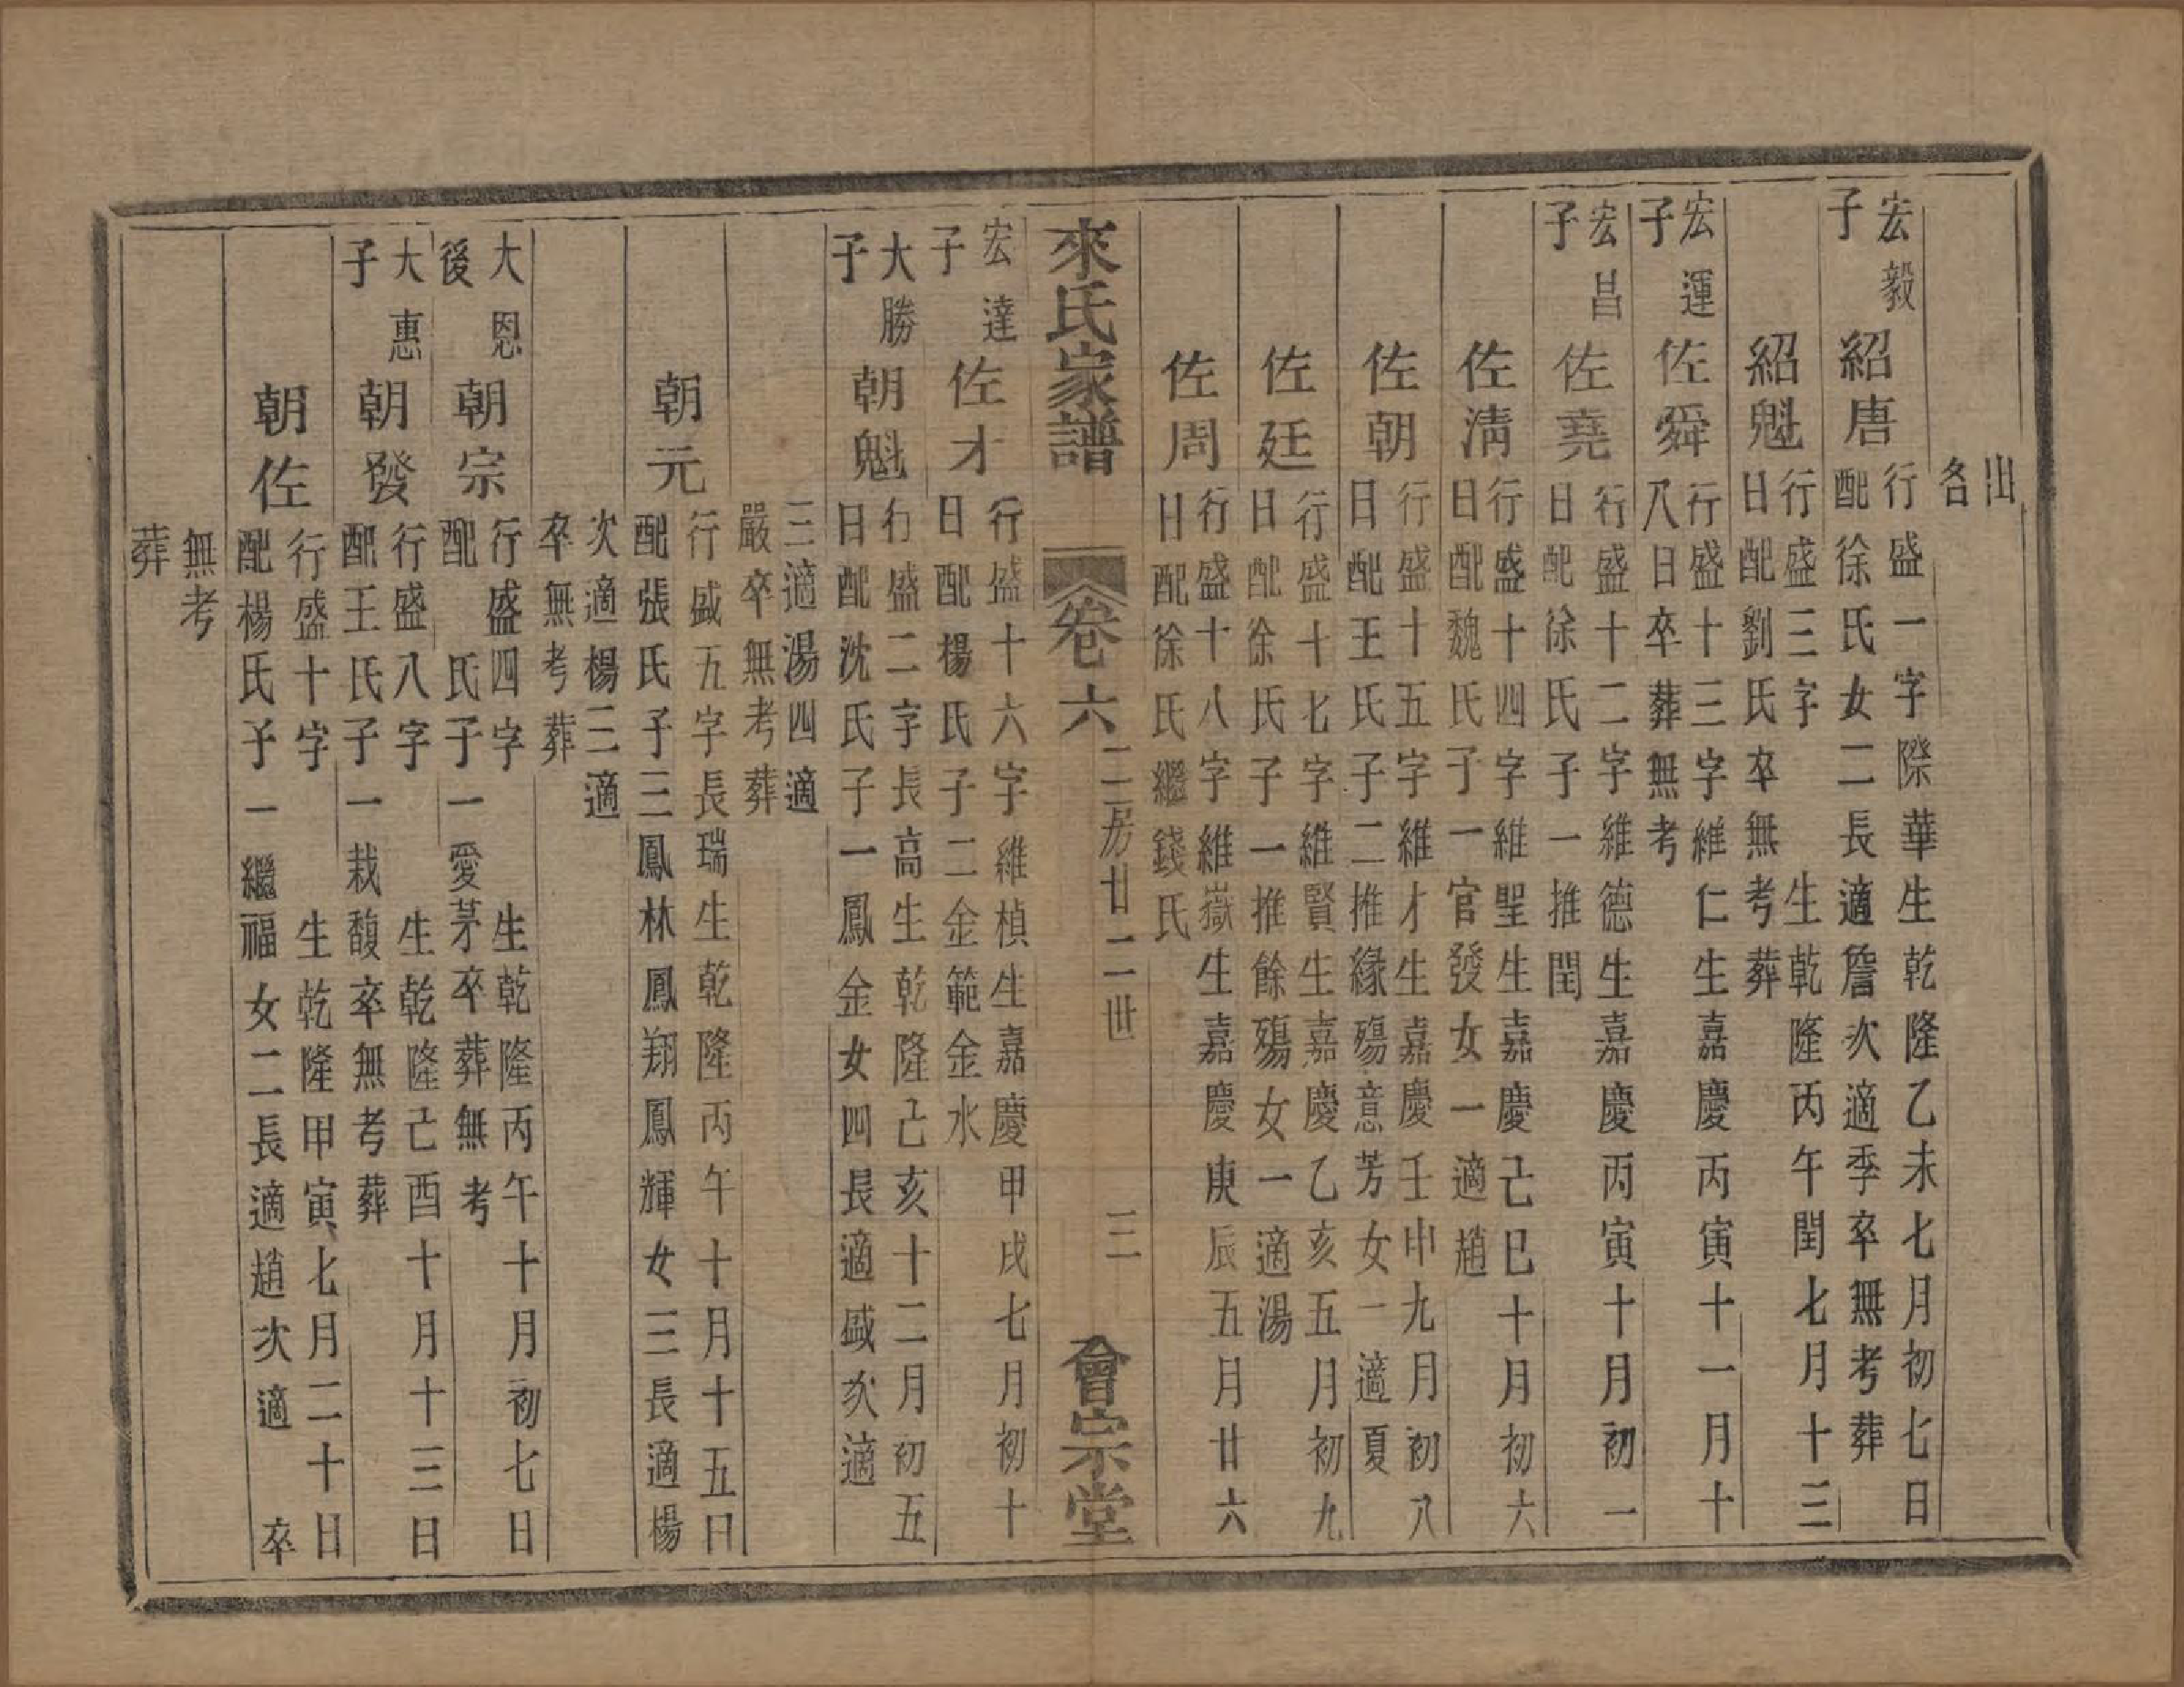 出
名
宏毅
子
紹唐
行盛一字際華生乾隆乙未七月初七日
配徐氏女二長適詹次適季卒無考葬
紹魁
行盛三字　生乾隆丙午閏七月十三
日配劉氏卒無考葬
宏運
子
佐舜
行盛十三字維仁生嘉慶丙寅十一月十
八日卒葬無考
宏昌
子
佐堯
行盛十二字維德生嘉慶丙寅十月初一
日配徐氏子一推閏
佐淸
行盛十四字維聖生嘉慶己巳十月初六
日配魏氏子一官發女一適趙
佐朝
行盛十五字維才生嘉慶壬申九月初八
日配王氏子二推緣殤意芳女一適夏
佐廷
行盛十七字維賢生嘉慶乙亥五月初九
日配徐氏子一推餘殤女一適湯
佐周
行盛十八字維嶽生嘉慶庚辰五月廿六
日配徐氏繼錢氏
來氏家譜
卷六
二房廿二世
三
會宗堂
宏達
子
佐才
行盛十六字維楨生嘉慶甲戌七月初十
日配楊氏子二金範金水
大勝
子
朝魁
行盛二字長高生乾隆己亥十二月初五
日配沈氏子一鳳金女四長適盛次適
三適湯四適
嚴卒無考葬
朝元
行盛五字長瑞生乾隆丙午十月十五日
配張氏子三鳳林鳳翔鳳輝女三長適楊
次適楊三適
卒無考葬
大恩
後
朝宗
行盛四字　生乾隆丙午十月初七日
配　氏子一愛茅卒葬無考
大惠
子
朝發
行盛八字　生乾隆己酉十月十三日
配王氏子一栽馥卒無考葬
朝佐
行盛十字　生乾隆甲寅七月二十日
配楊氏子一繼福女二長適趙次適　卒
無考
葬